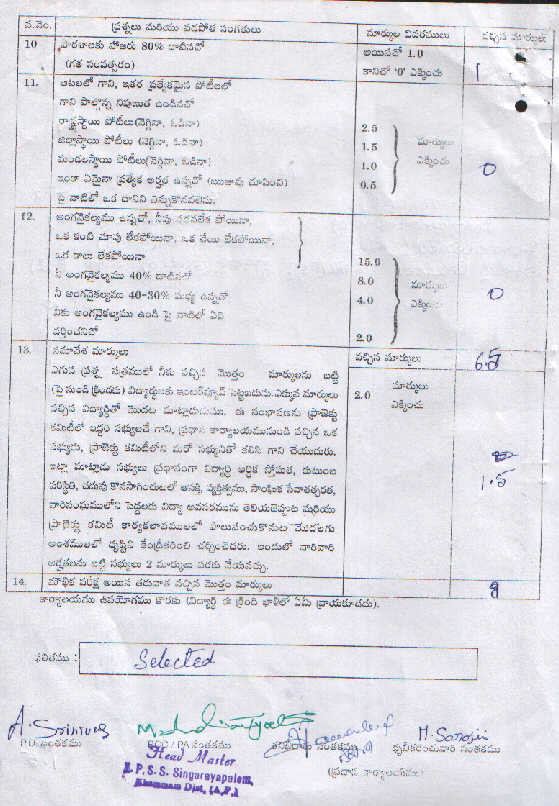 వ.నెం. ప్రశ్నలు మరియు వడపోత సంగతులు మార్కుల వివరములు వచ్చిన మార్కులు
10 పాఠశాలకు హాజరు 80% దాటినచో అయినచో 1.0
(గత సంవత్సరం) కానిచో '0' ఎక్కించు 1
11. ఆటలలో గాని, ఇతర ప్రత్యేకమైన పోటీలలో
గాని పాల్గొన్న నిపుణుత ఉండినచో
రాష్ట్రస్థాయి పోటీలు(నెగ్గినా, ఓడినా) 2.5 మార్కులు
జిల్లాస్థాయి పోటీలు (నెగ్గినా, ఓడినా) 1.5 ఎక్కించు
మండలస్థాయి పోటీలు(నెగ్గినా, ఓడినా) 1.0 0
ఇంకా ఏమైనా ప్రత్యేక అర్హత ఉన్నచో (ఋజువు చూపించి) 0.5
పై వాటిలో ఒక దానిని ఎన్నుకొనవలెను.
12. అంగవైకల్యము ఉన్నచో, నీవు నడవలేక పోయినా,
ఒక కంటి చూపు లేకపోయినా, ఒక చేయి లేకపోయినా,
ఒక కాలు లేకపోయినా 15.0
నీ అంగవైకల్యము 40% దాటినచో 8.0 మార్కులు
నీ అంగవైకల్యము 40-30% మధ్య ఉన్నచో 4.0 ఎక్కించు 0
నీకు అంగవైకల్యము ఉండి పై వాటిలో ఏది
వర్తించనిచో 2.0
13. సమావేశ మార్కులు వచ్చిన మార్కులు 6.5
ఎగువ ప్రశ్న పత్రములో నీకు వచ్చిన మొత్తం మార్కులను బట్టి 2.0 మార్కులు
(పై నుండి క్రిందకు) విద్యార్థులకు ఇంటర్వ్యూవ్ పెట్టబడును.ఎక్కువ మార్కులు ఎక్కించు
వచ్చిన విద్యార్థితో మొదట మాట్లాడుదుము. ఈ సంభాషణను ప్రాజెక్టు
కమిటీలో ఇద్దరు సభ్యులచే గాని, ప్రధాన కార్యాలయమునుండి వచ్చిన ఒక
సభ్యుడు, ప్రాజెక్టు కమిటీలోని మరో సభ్యునితో కలిసి గాని చేయుదురు.
ఇట్లా మాట్లాడు సభ్యులు ప్రధానంగా విద్యార్థి ఆర్థిక స్తోమత, కుటుంబ
పరిస్థితి, చదువు కొనసాగించుటలో ఆసక్తి, వ్యక్తిత్వము, సాంఘిక సేవాతత్పరత, 1.5
వారిసంఘములోని పెద్దలకు విద్యా అవసరమును తెలియజెప్పుట మరియు
ప్రాజెక్టు కమిటీ కార్యకలాపములలో పాలుపంచుకొనుట మొదలగు
అంశములలో దృష్టిని కేంద్రీకరించి చర్చించెదరు. అందులో వారివారి
అర్హతలను బట్టి సభ్యులు 2 మార్కులు వరకు వేయవచ్చు.
14. మౌఖిక పరీక్ష అయిన తరువాత వచ్చిన మొత్తం మార్కులు 8
కార్యాలయము ఉపయోగము కొరకు (విద్యార్థి ఈ క్రింది ఖాళీలో ఏమీ వ్రాయకూడదు).
ఫలితము : Selected
A. Srinivas M. Saroji
PD సంతకము PA సంతకము సంతకము ధృవీకరించువారి సంతకము
Head Master (ప్రధాన కార్యాలయము)
P.S.S. Singarayapalem,
Khammam Dist, (A.P.)